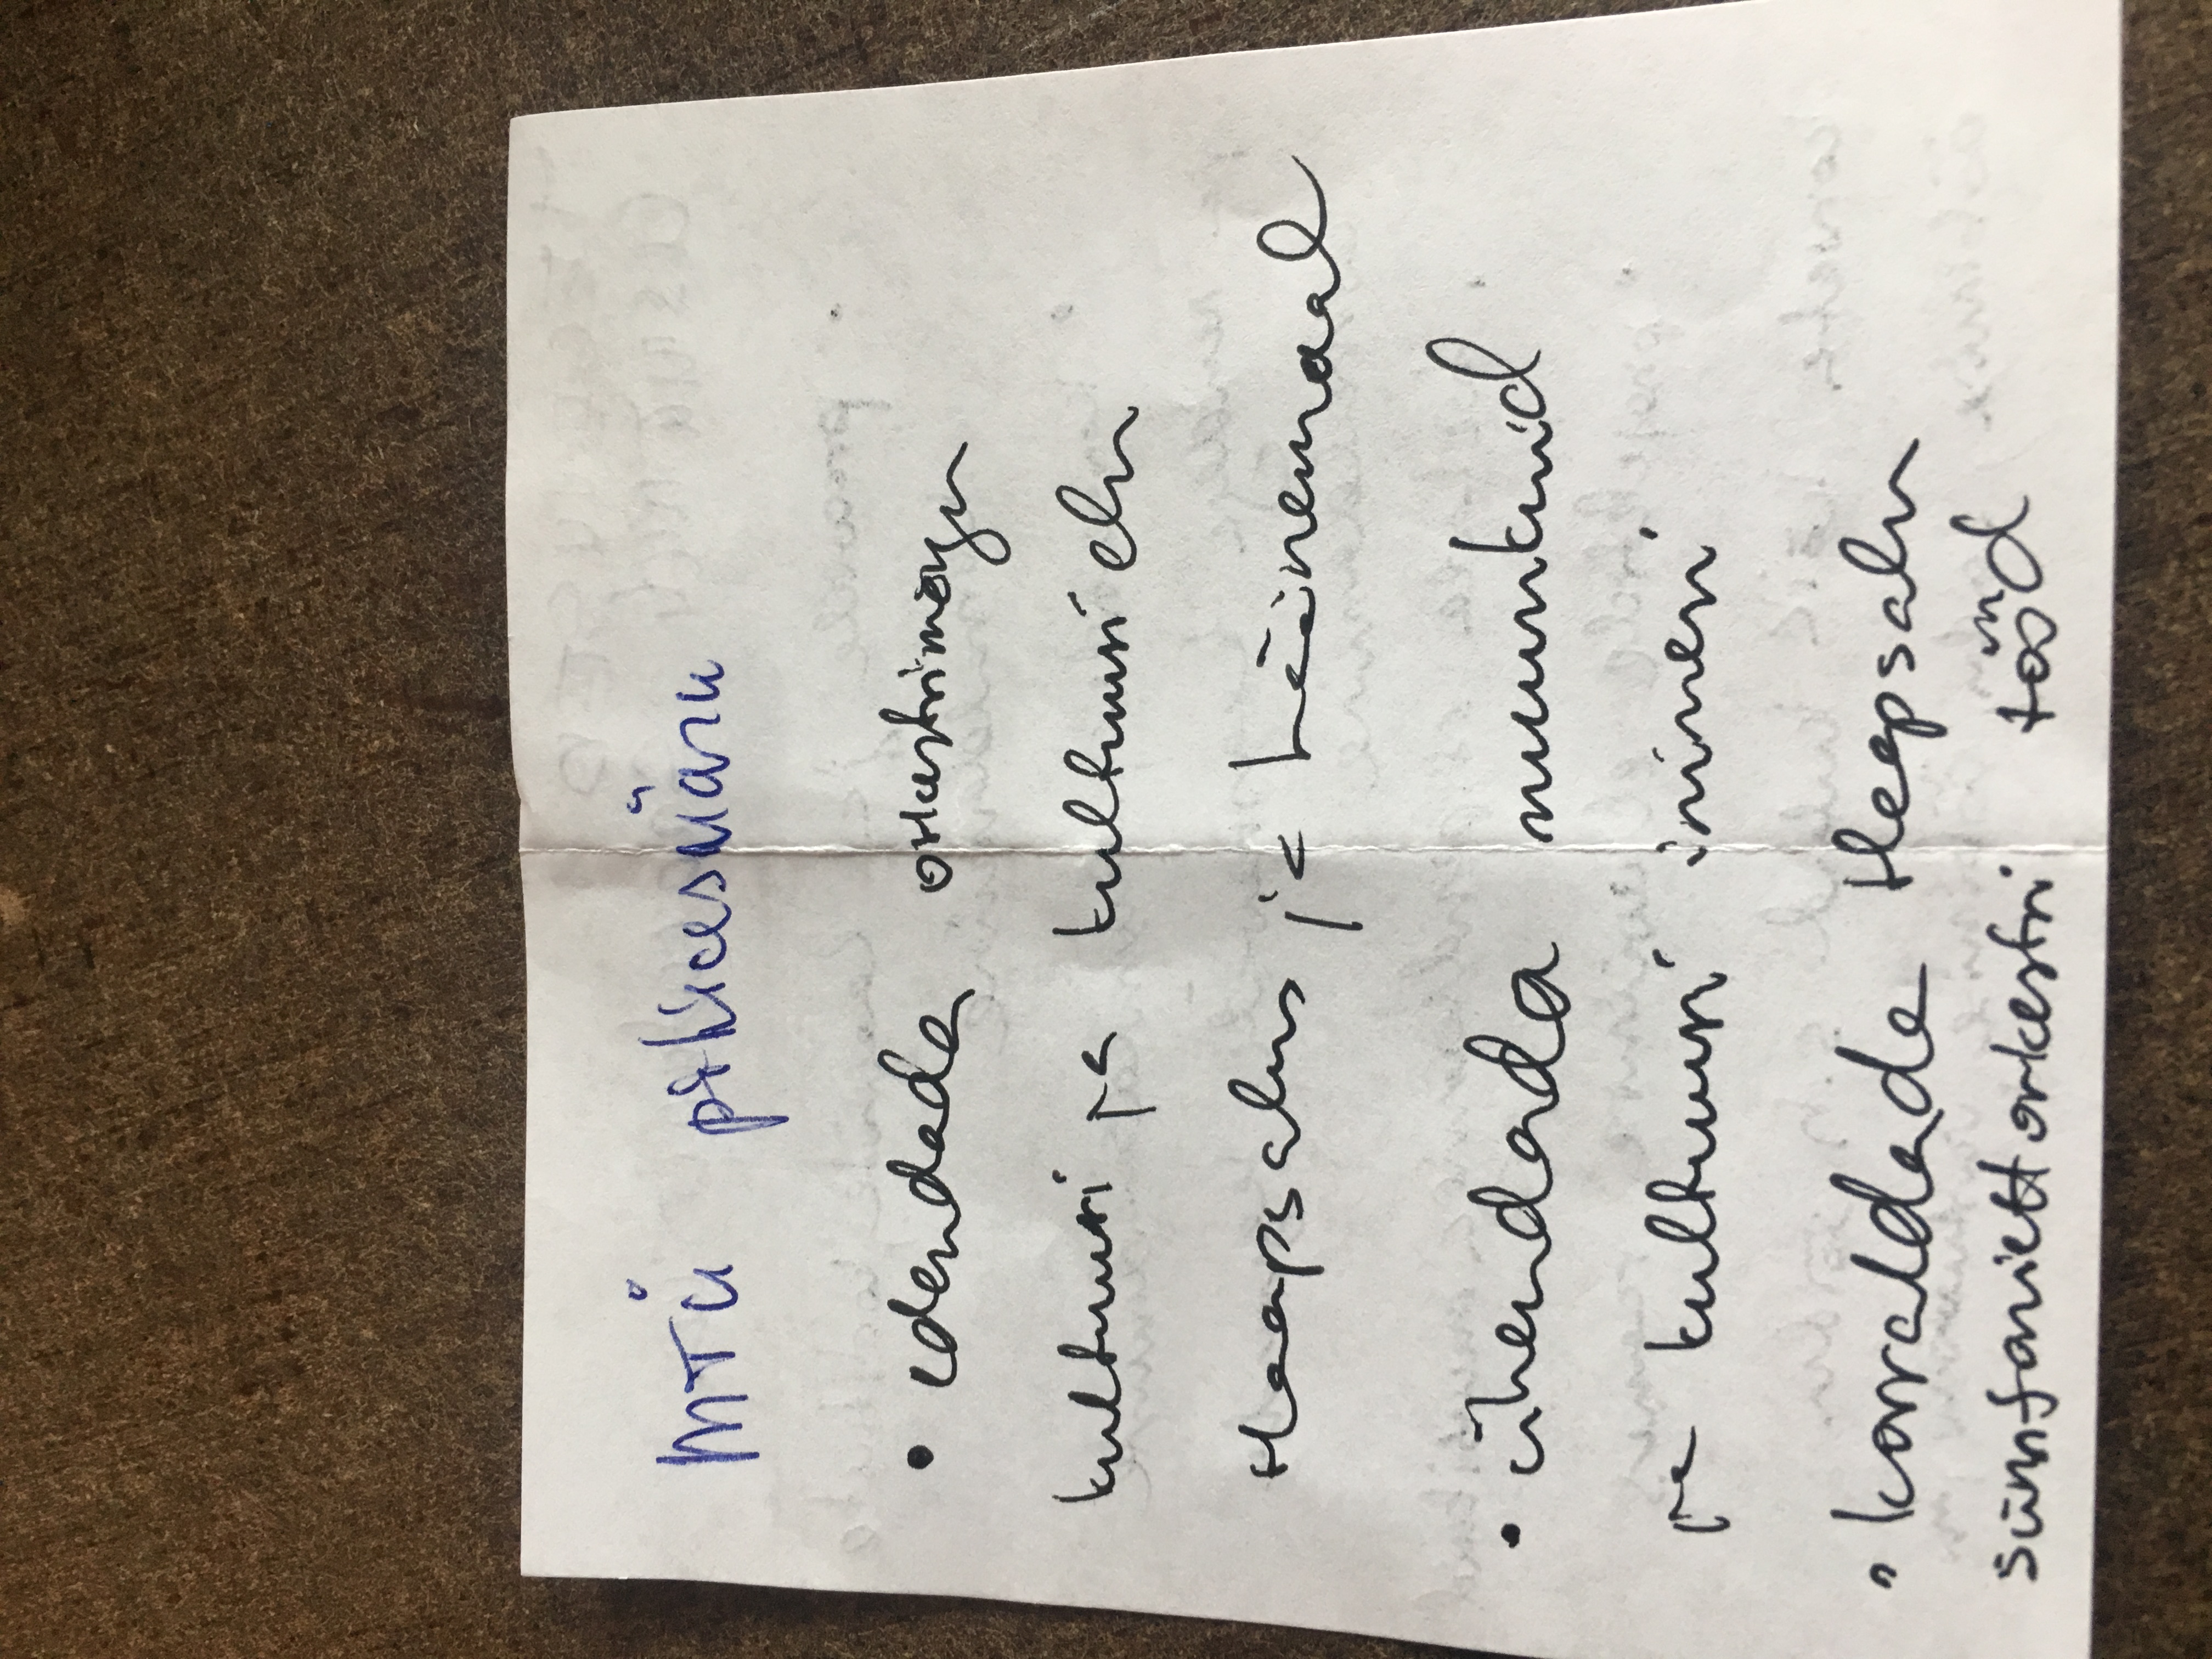 MTÜ põhieesmärk
• edendada orkestrimängu
kultuuri ja kultuurielu
Haapsalus ja Läänemaal
• ühendada muusikuid
ja kultuuri inimesi
• korraldada Haapsalu
sümfoniettorkestri tööd